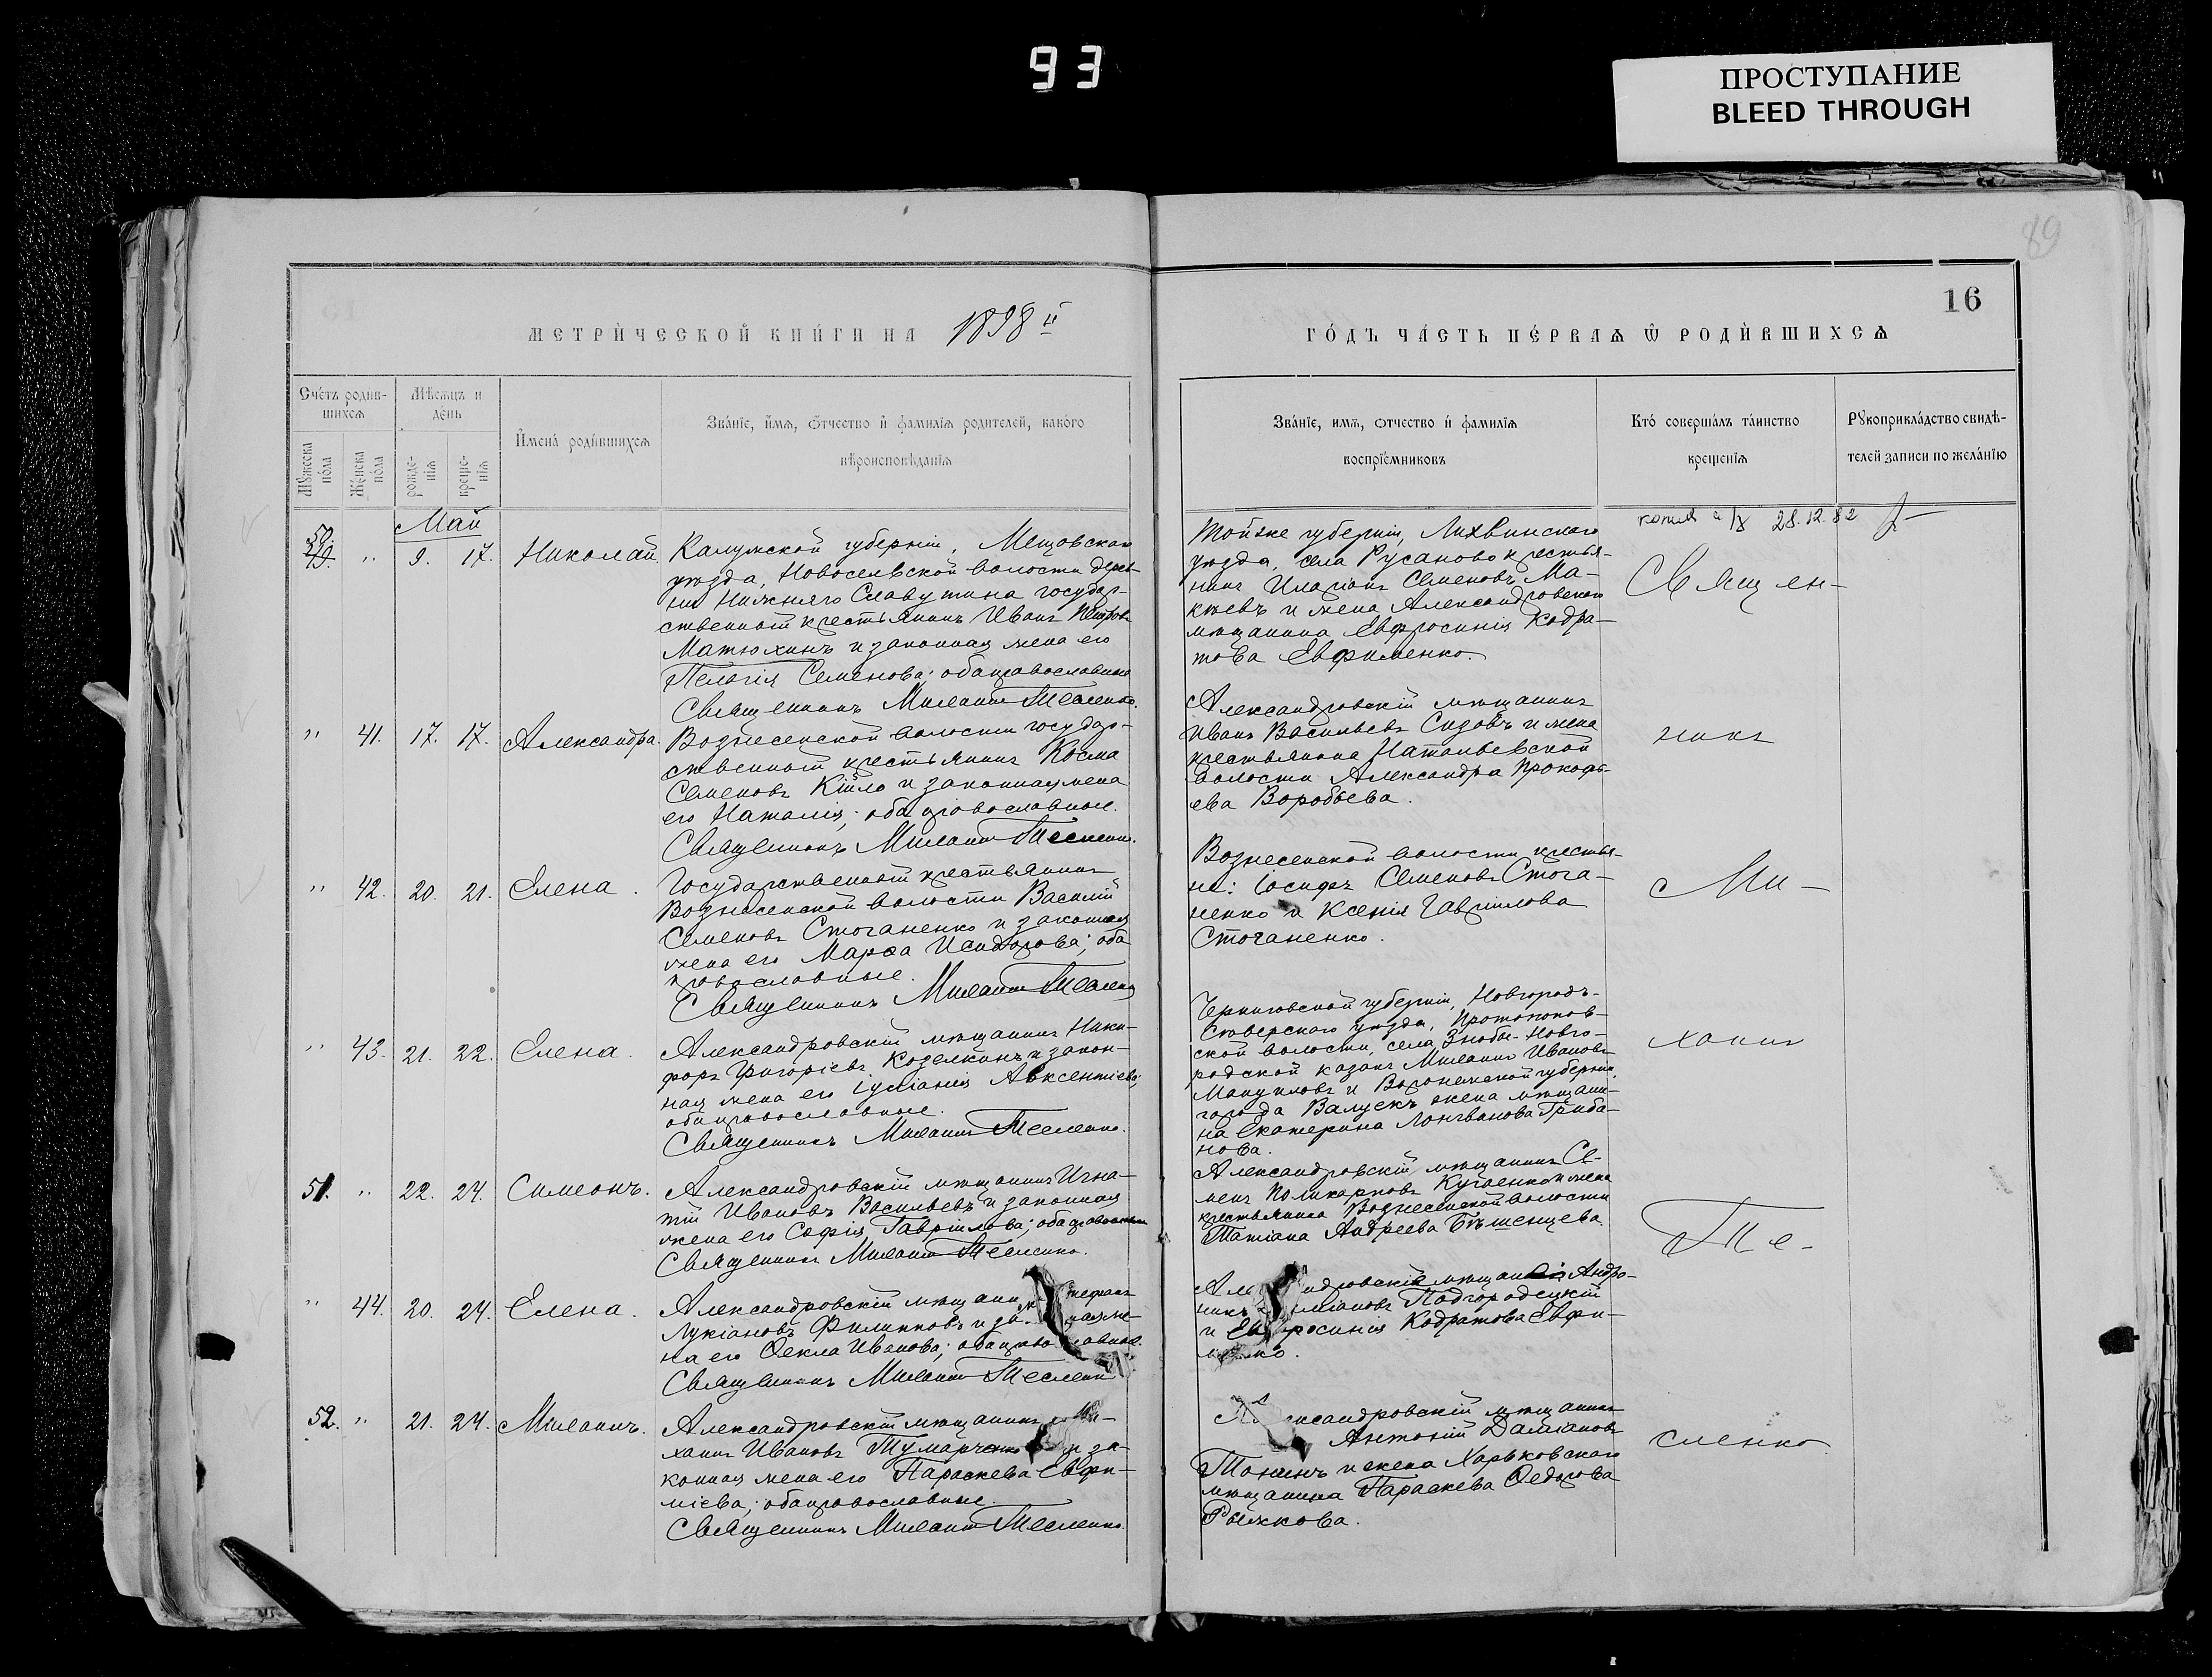 93
ПРОСТУПАНИЕ
BLEED THROUGH
89
16
МЕТРИЧЕСКОЙ КНИГИ НА 1898 й
ГОДЪ ЧАСТЬ ПЕРВАѦ Ѿ РОДИВШИХСѦ
Счетъ родив-
шихсѧ
Мѣсѧцъ и
день
Имена родившихсѧ
Званіе, имѧ, отчество и фамиліѧ родителей, какого
вѣроисповѣданіѧ
Мꙋжеска
пола
Женска
пола
рожде-
ніѧ
креще-
ніѧ
Званіе, имѧ, отчество и фамиліѧ
воспріемниковъ
Кто совершалъ таинство
крещеніѧ
Рꙋкоприкладство свидѣ-
телей записи по желанію
Май
50. " 9. 17. Николай.
Калужской губерніи, Мещовскаго
уѣзда, Новоселвской волости дерев-
ни Нижняго Славутина государ-
ственный крестьянинъ Иванъ Петровъ
Матюхинъ и законная жена его
Пелагія Семенова; оба православные
Священникъ Михаилъ Тесленко.
Тойже губерніи, Лихвинскаго
уѣзда, села Русаново крестья-
нинъ Иларіонъ Семеновъ Ма-
кѣевъ и жена Александровскаго
мѣщанина Евфросинія Кодра-
това Евфименко.
28.12.82
Свящ ен-
" 41. 17. 17. Александра.
Вознесенской волости государ-
ственный крестьянинъ Косма
Семеновъ Кійло и законная жена
его Наталія; оба православные.
Священникъ Михаилъ Тесленко.
Александровскій мѣщанинъ
Иванъ Васильевъ Сизовъ и жена
крестьянина Натальевской
волости Александра Прокофь-
ева Воробьева.
никъ
" 42. 20. 21. Елена.
Государственный крестьянинъ
Вознесенской волости Василій
Семеновъ Стоганенко и законная
жена его Марѳа Исидорова; оба
православные.
Священникъ Михаилъ Тесленко
Вознесенской волости крестья-
не: Іосифъ Семеновъ Стога-
ненко и Ксенія Гавріилова
Стоганенко.
Ми-
" 43. 21. 22. Елена.
Александровскій мѣщанинъ Ники-
форъ Григорьевъ Козелкинъ и закон-
ная жена его Іуліанія Авксентіева;
оба православные.
Священникъ Михаилъ Тесленко.
Черниговской губерніи, Новгородъ-
Сѣверскаго уѣзда, Протопопов-
ской волости, села Знобы-Новго-
родской казакъ Михаилъ Ивановъ
Мануиловъ и Воронежской губерніи
города Валуекъ жена мѣщани-
на Екатерина Лонгвинова Гриба-
нова.
хаилъ
51. " 22. 24. Симеонъ.
Александровскій мѣщанинъ Игна-
тій Ивановъ Васильевъ и законная
жена его Софія Гавріилова; оба православные
Священникъ Михаилъ Тесленко.
Александровскій мѣщанинъ Се-
менъ Поликарповъ Кугаенко и жена
крестьянина Вознесенской волости
Татіана Андреева Бѣшенцева.
Те-
" 44. 20. 24. Елена.
Александровскій мѣщанин Стефанъ
Лукіановъ Филипповъ и за ная же-
на его Ѳекла Иванова; оба право лавные.
Священникъ Михаилъ Тесленко
Але ндровскіе мѣщане: Андро-
никъ миліановъ Подгородецкій
и Ев росинія Кодратова Евфи-
м нко.
52. " 21. 24. Михаилъ.
Александровскій мѣщанинъ Ми-
хаилъ Ивановъ Тумарченко и за-
конная жена его Параскева Евфи-
міева; оба православные.
Священникъ Михаилъ Тесленко.
Александровскій мѣщанинъ
Антоній Даміановъ
Тонинъ и жена Харьковскаго
мѣщанина Параскева Ѳедорова
Рыжкова.
сленко